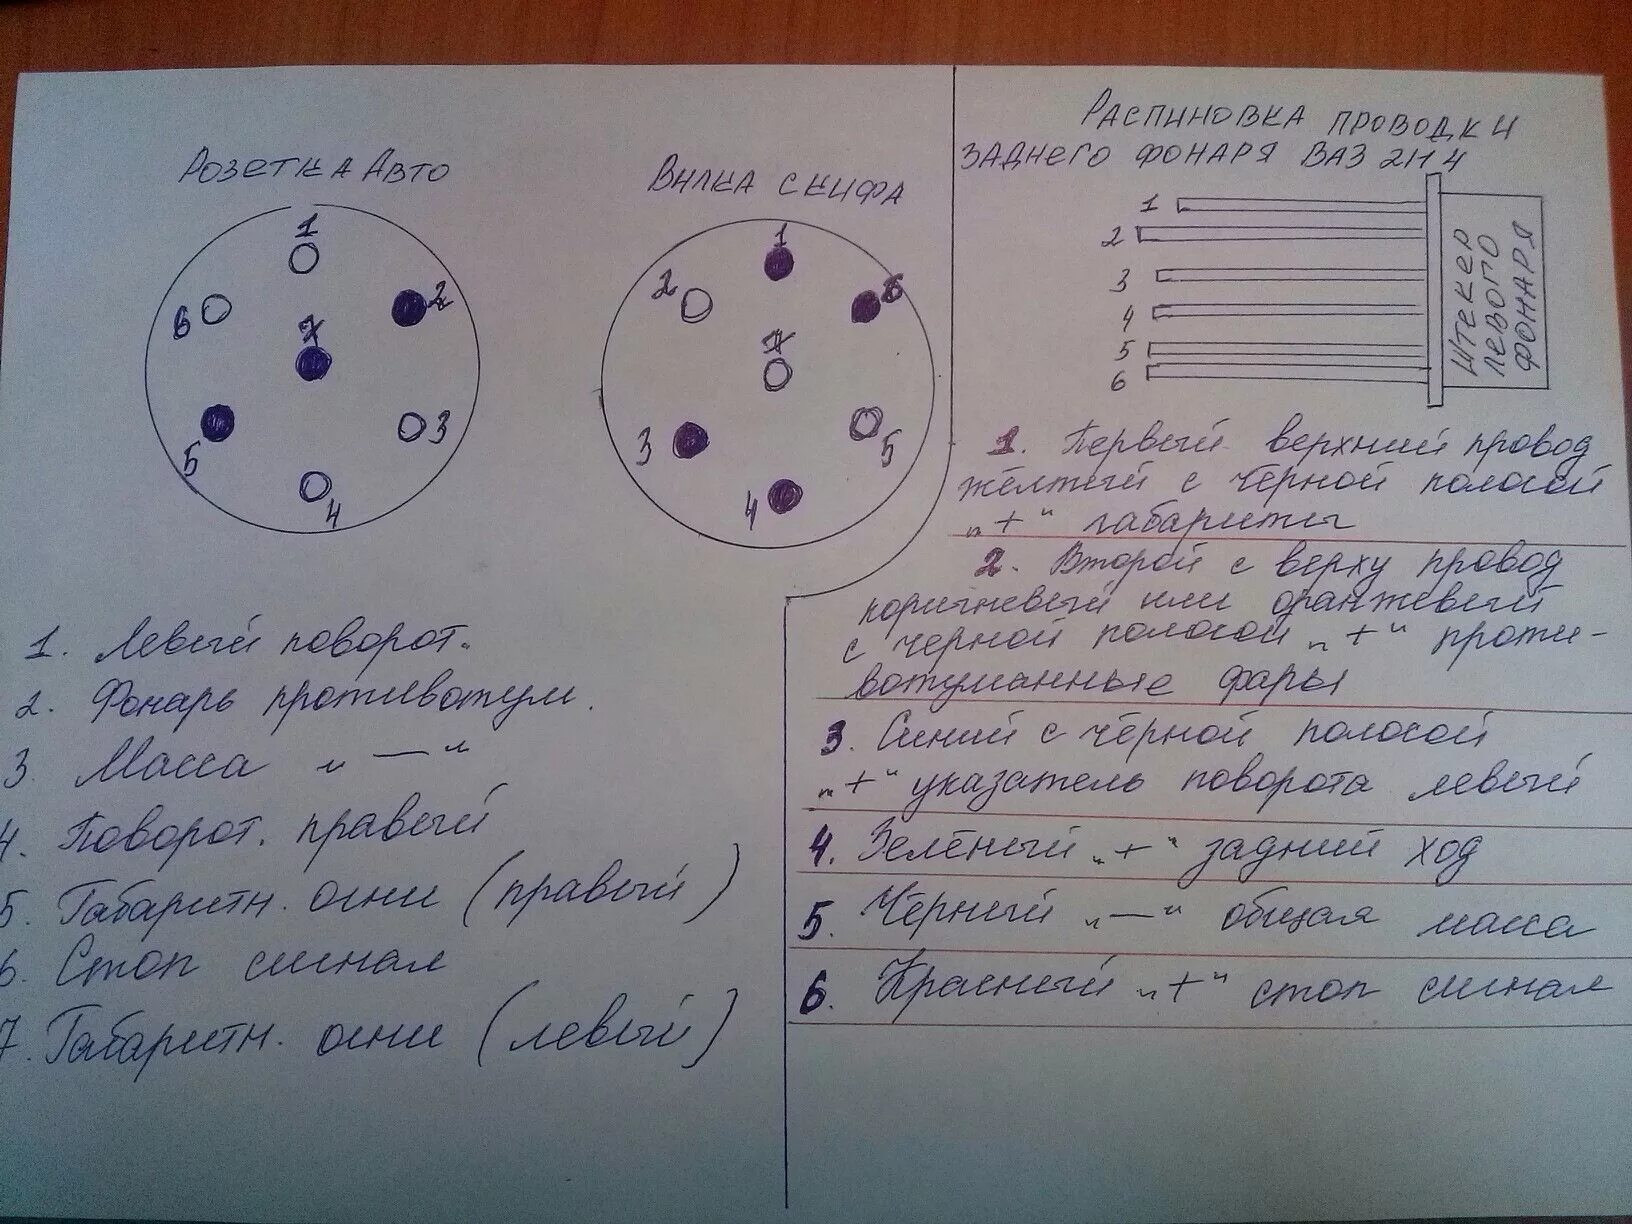 Розетка Авто
1
2
3
4
5
6
7
Вилка скифа
1
2
3
4
5
6
7
Распиновка проводки
заднего фонаря ВАЗ 2114
1
2
3
4
5
6
Штекер
левого
фонаря
1. Левый поворот.
2. Фонарь противотум.
3. Масса „—“
4. Поворот. правый
5. Габаритн. огни (правый)
6. Стоп сигнал
7. Габаритн. огни (левый)
1. Первый верхний провод
жёлтый с чёрной полосой
„+“ габариты
2. Второй с верху провод
коричневый или оранжевый
с черной полосой „+“ проти-
вотуманные фары
3. Синий с чёрной полосой
„+“ указатель поворота левый
4. Зелёный „+“ задний ход
5. Чёрный „—“ общая масса
6. Красный „+“ стоп сигнал